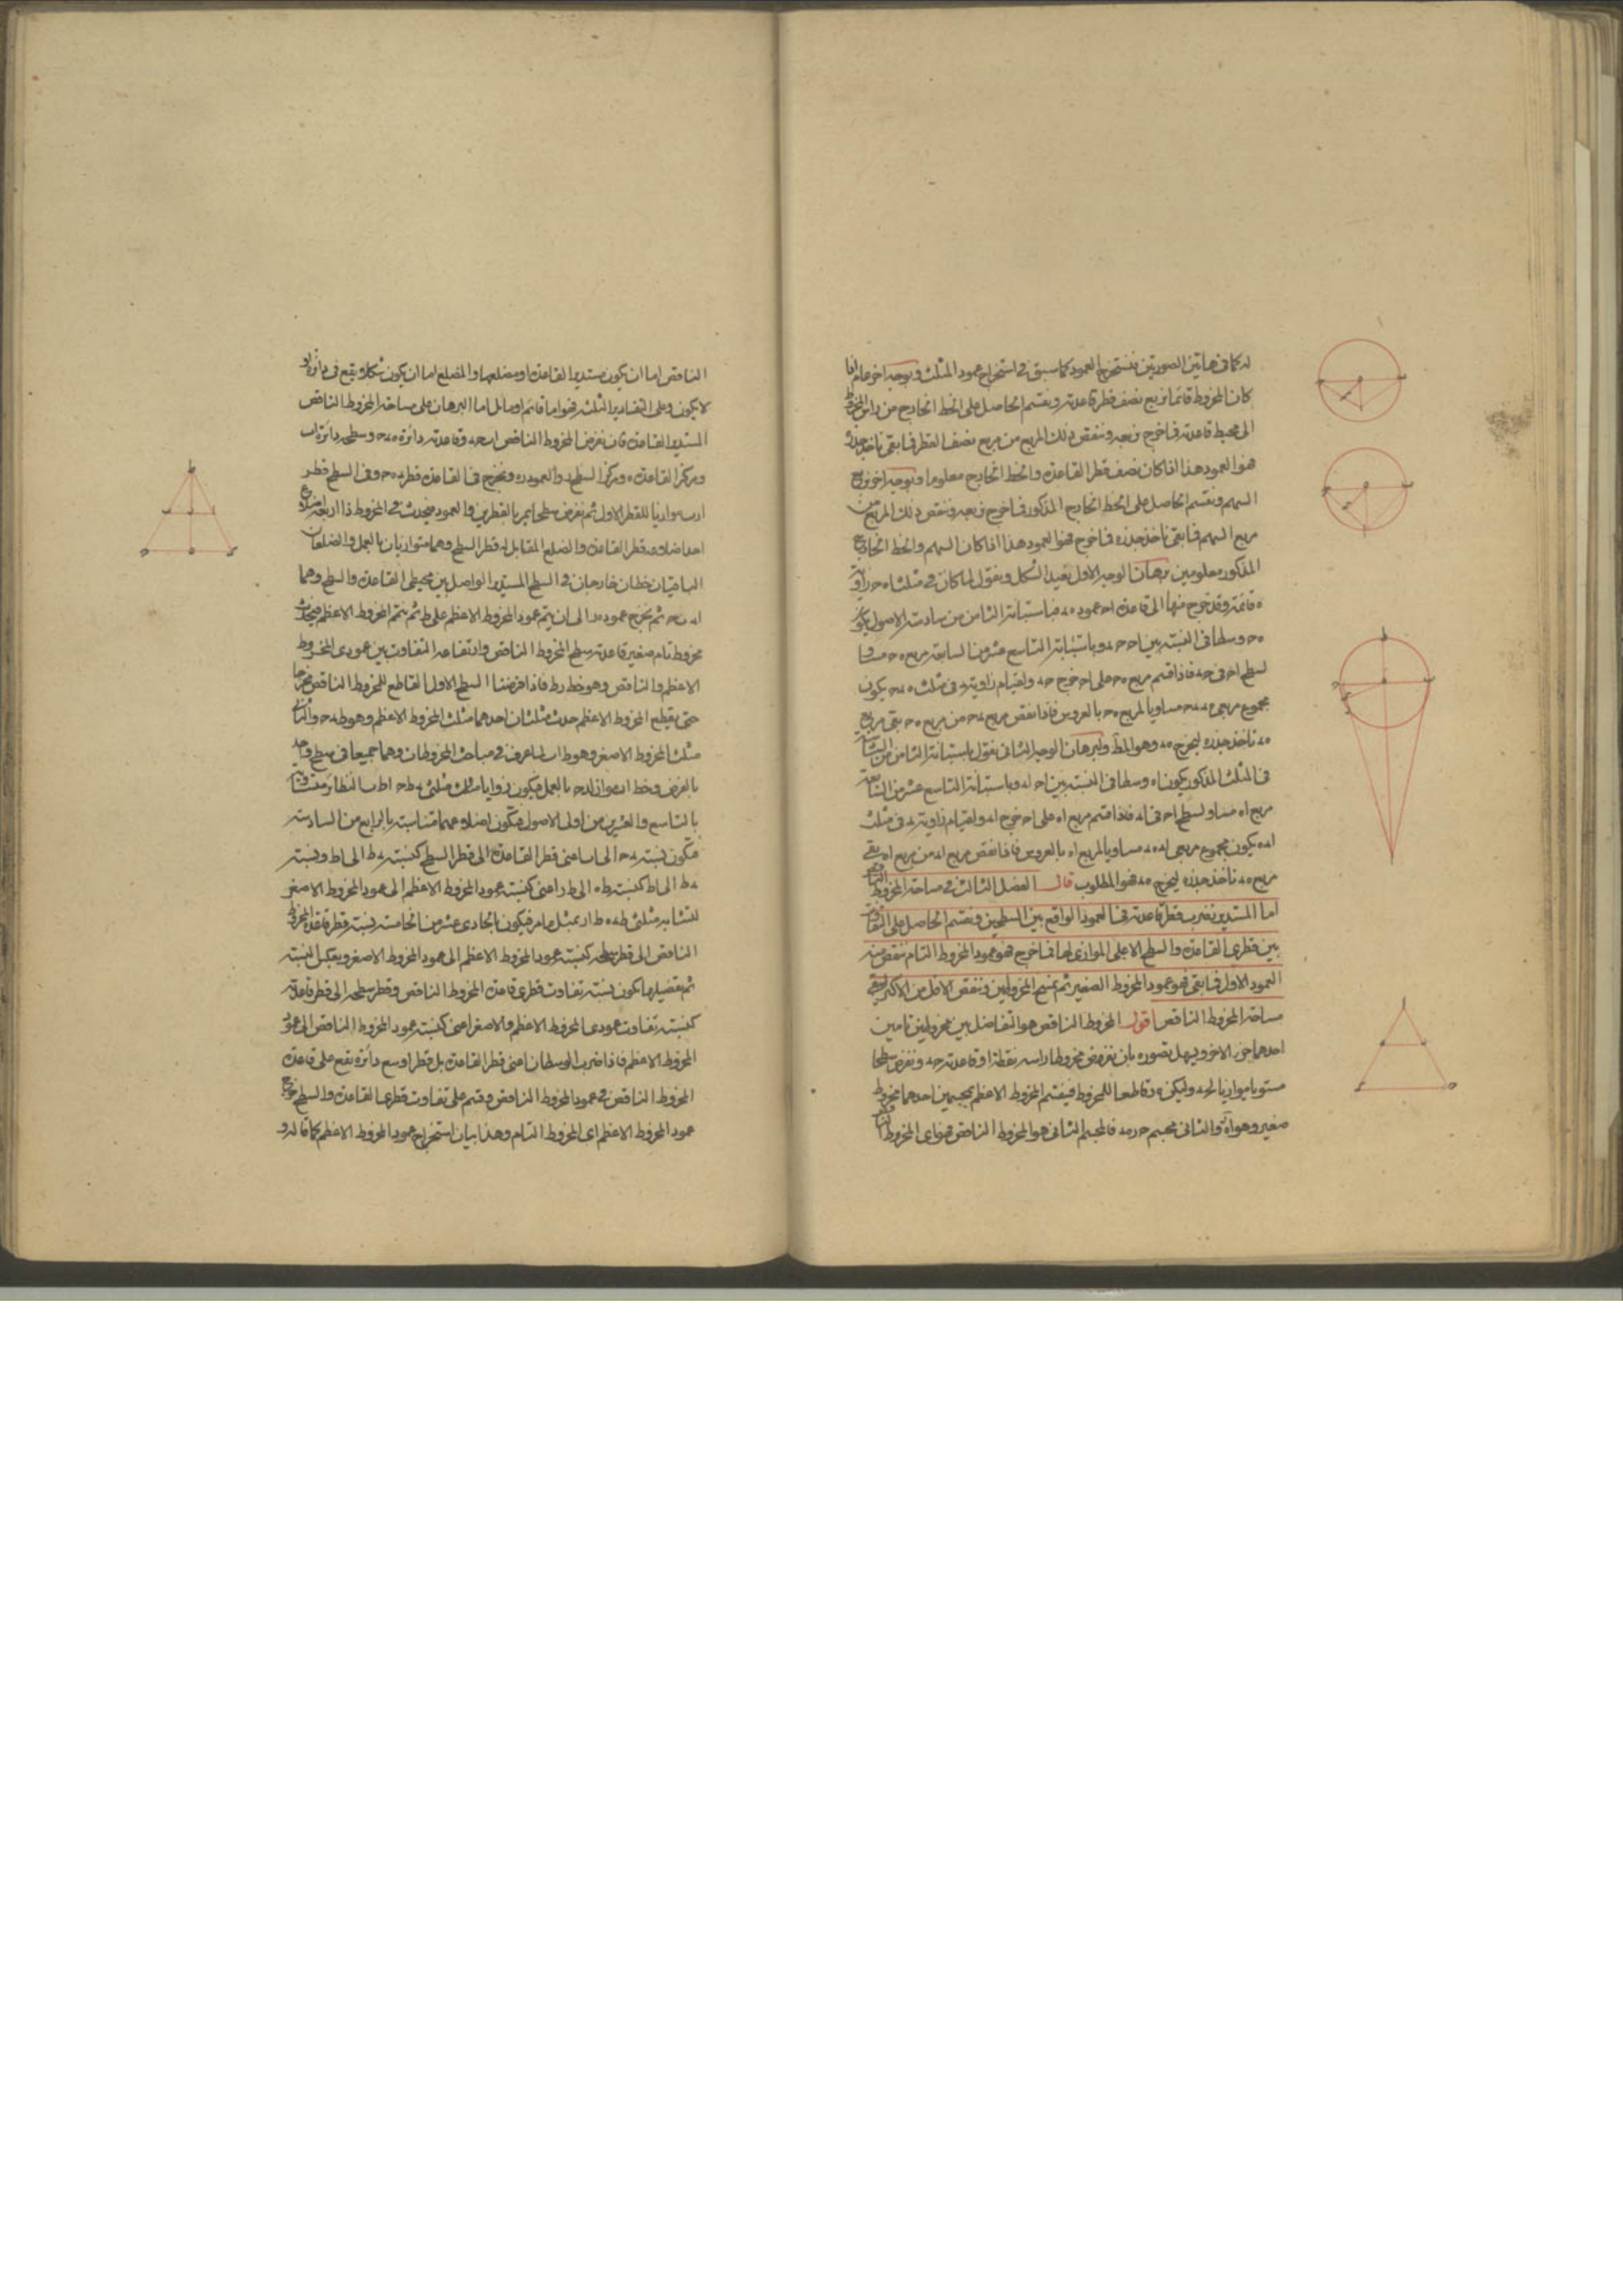 له كما فى هاتين الصورتين فنستخرج العمود كما سبق فى استخراج عمود المثلث وبوجه اخر عام اذا
كان المخروط قائما نربع نصف قطر قاعدته ونقسم الحاصل على الخط الخارج من راس المخروط
الى محيط قاعدته فما خرج نربعه وننقص ذلك المربع من مربع نصف القطر فما بقى ناخذ جذره
فهو العمود هذا اذا كان نصف قطر القاعدة والخط الخارج معلوما وبوجه اخر نربع
السهم ونقسم الحاصل على الخط الخارج المذكور فما خرج نربعه وننقص ذلك المربع من
مربع السهم فما بقى ناخذ جذره فما خرج فهو العمود هذا اذا كان السهم والخط الخارج
المذكور معلومين برهان الوجه الاول نعيد الشكل ونقول لما كان فى مثلث ا ه ح زاوية
ه قائمة وقد خرج منها الى قاعدة ا ح عمود ه د فباستبانة الثامن من سادسة الاصول يكون
ه ح وسطا فى النسبة بين ا ح ح د وباستبانة التاسع عشر من السابعة مربع ه ح مساويا
لسطح ا ح فى ح د فاذا قسم مربع ه ح على ا ح خرج ح د ولقيام زاوية د فى مثلث ه د ح يكون
مجموع مربعى ه د د ح مساويا لمربع ه ح بالعروس فاذا نقص مربع د ح من مربع ه ح بقى مربع
ه د ناخذ جذره ليخرج ه د وهو المط ولبرهان الوجه الثانى نقول باستبانة الثامن من السادسة
فى المثلث المذكور يكون ا ه وسطا فى النسبة بين ا ح ا د وباستبانة التاسع عشر من السابعة
مربع ا ه مساو لسطح ا ح فى ا د فاذا قسم مربع ا ه على ا ح خرج ا د ولقيام زاوية د فى مثلث
ا د ه يكون مجموع مربعى ا د ه د مساويا لمربع ا ه بالعروس فاذا نقص مربع ا د من مربع ا ه بقى
مربع ه د ناخذ جذره ليخرج ه د فهو المطلوب قال الفصل الثالث فى مساحة المخروط الناقص
اما المستدير نضرب قطر قاعدته فى العمود الواقع بين السطحين ونقسم الحاصل على التفاوت
بين قطرى القاعدة والسطح الاعلى الموازى لها فما خرج فهو عمود المخروط التام ننقص منه
العمود الاول فما بقى فهو عمود المخروط الصغير ثم نمسح المخروطين وننقص الاقل من الاكثر ليبقى
مساحة المخروط الناقص اقول المخروط الناقص هو التفاضل بين مخروطين تامين
احدهما جزء الاخر ويسهل تصوره بان نفرض مخروطا راسه نقطة ا وقاعدته ح د ونفرض سطحا
مستويا موازيا لح د وليكن ه ر قاطعا للمخروط فينقسم المخروط الاعظم بمجسمين احدهما مخروط
صغير وهو والثانى مجسم فالمجسم الثانى هو المخروط الناقص المخروط
الناقص اما ان يكون مستدير القاعدة او مضلعها والمضلع اما ان يكون شكلا يقع فى دائرة او
لا يكون وعلى التقادير الثلث فهو اما قائم او مائل اما البرهان على مساحة المخروط الناقص
المستدير القاعدة فان نفرض المخروط الناقص ا ب ح د وقاعدته دائرة ه د ح وسطحه دائرة ا ب
ومركز القاعدة ه ومركز السطح ر والعمود ر ه ونخرج فى القاعدة قطر د ه ح وفى السطح قطر
ا ر ب موازيا للقطر الاول ثم نفرض سطحا يمر بالقطرين والعمود فيحدث فى المخروط ذا اربعة اضلاع
احد اضلاعه قطر القاعدة والضلع المقابل له قطر السطح وهما متوازيان بالعمل والضلعان
الباقيان خطان خارجان فى السطح المستدير الواصل بين محيطى القاعدة والسطح وهما
ا د ب ح ثم نخرج عمود ه ر الى ان يتم عمود المخروط الاعظم على ط ثم نتمم المخروط الاعظم فيحدث
مخروط تام صغير قاعدته سطح المخروط الناقص وارتفاعه التفاوت بين عمودى المخروط
الاعظم والناقص وهو خط ر ط فاذا فرضنا السطح الاول القاطع للمخروط الناقص مخرجا
حتى يقطع المخروط الاعظم حدث مثلثان احدهما مثلث المخروط الاعظم وهو ط د ح والثانى
مثلث المخروط الاصغر وهو ط ا ب لما عرف فى مباحث المخروطات وهما جميعا فى سطح واحد
بالفرض وخط ا ب مواز ل د ح بالعمل فيكون زوايا مثلثى د ط ح ا ط ب النظائر متساوية
بالتاسع والعشرين من اولى الاصول فتكون اضلاعهما متناسبة بالرابع من السادسة
فتكون نسبة د ح الى ا ب اعنى قطر القاعدة الى قطر السطح كنسبة د ط الى ا ط ونسبة
د ط الى ا ط كنسبة ط ه الى ط ر اعنى كنسبة عمود المخروط الاعظم الى عمود المخروط الاصغر
لتشابه مثلثى ط د ه ط ا ر بمثل ما مر فيكون بالحادى عشر من الخامسة نسبة قطر قاعدة المخروط
الناقص الى قطر سطحه كنسبة عمود المخروط الاعظم الى عمود المخروط الاصغر وبعكس النسبة
ثم تفصيلها تكون نسبة تفاوت قطرى قاعدة المخروط الناقص وقطر سطحه الى قطر قاعدته
كنسبة تفاوت عمودى المخروط الاعظم والاصغر اعنى كنسبة عمود المخروط الناقص الى عمود
المخروط الاعظم فاذا ضرب الوسطان اعنى قطر القاعدة بل قطر اوسع دائرة تقع على قاعدة
المخروط الناقص فى عمود المخروط الناقص وقسم على تفاوت قطرى القاعدة والسطح خرج
عمود المخروط الاعظم اى المخروط التام وهذا بيان استخراج عمود المخروط الاعظم كما قاله و